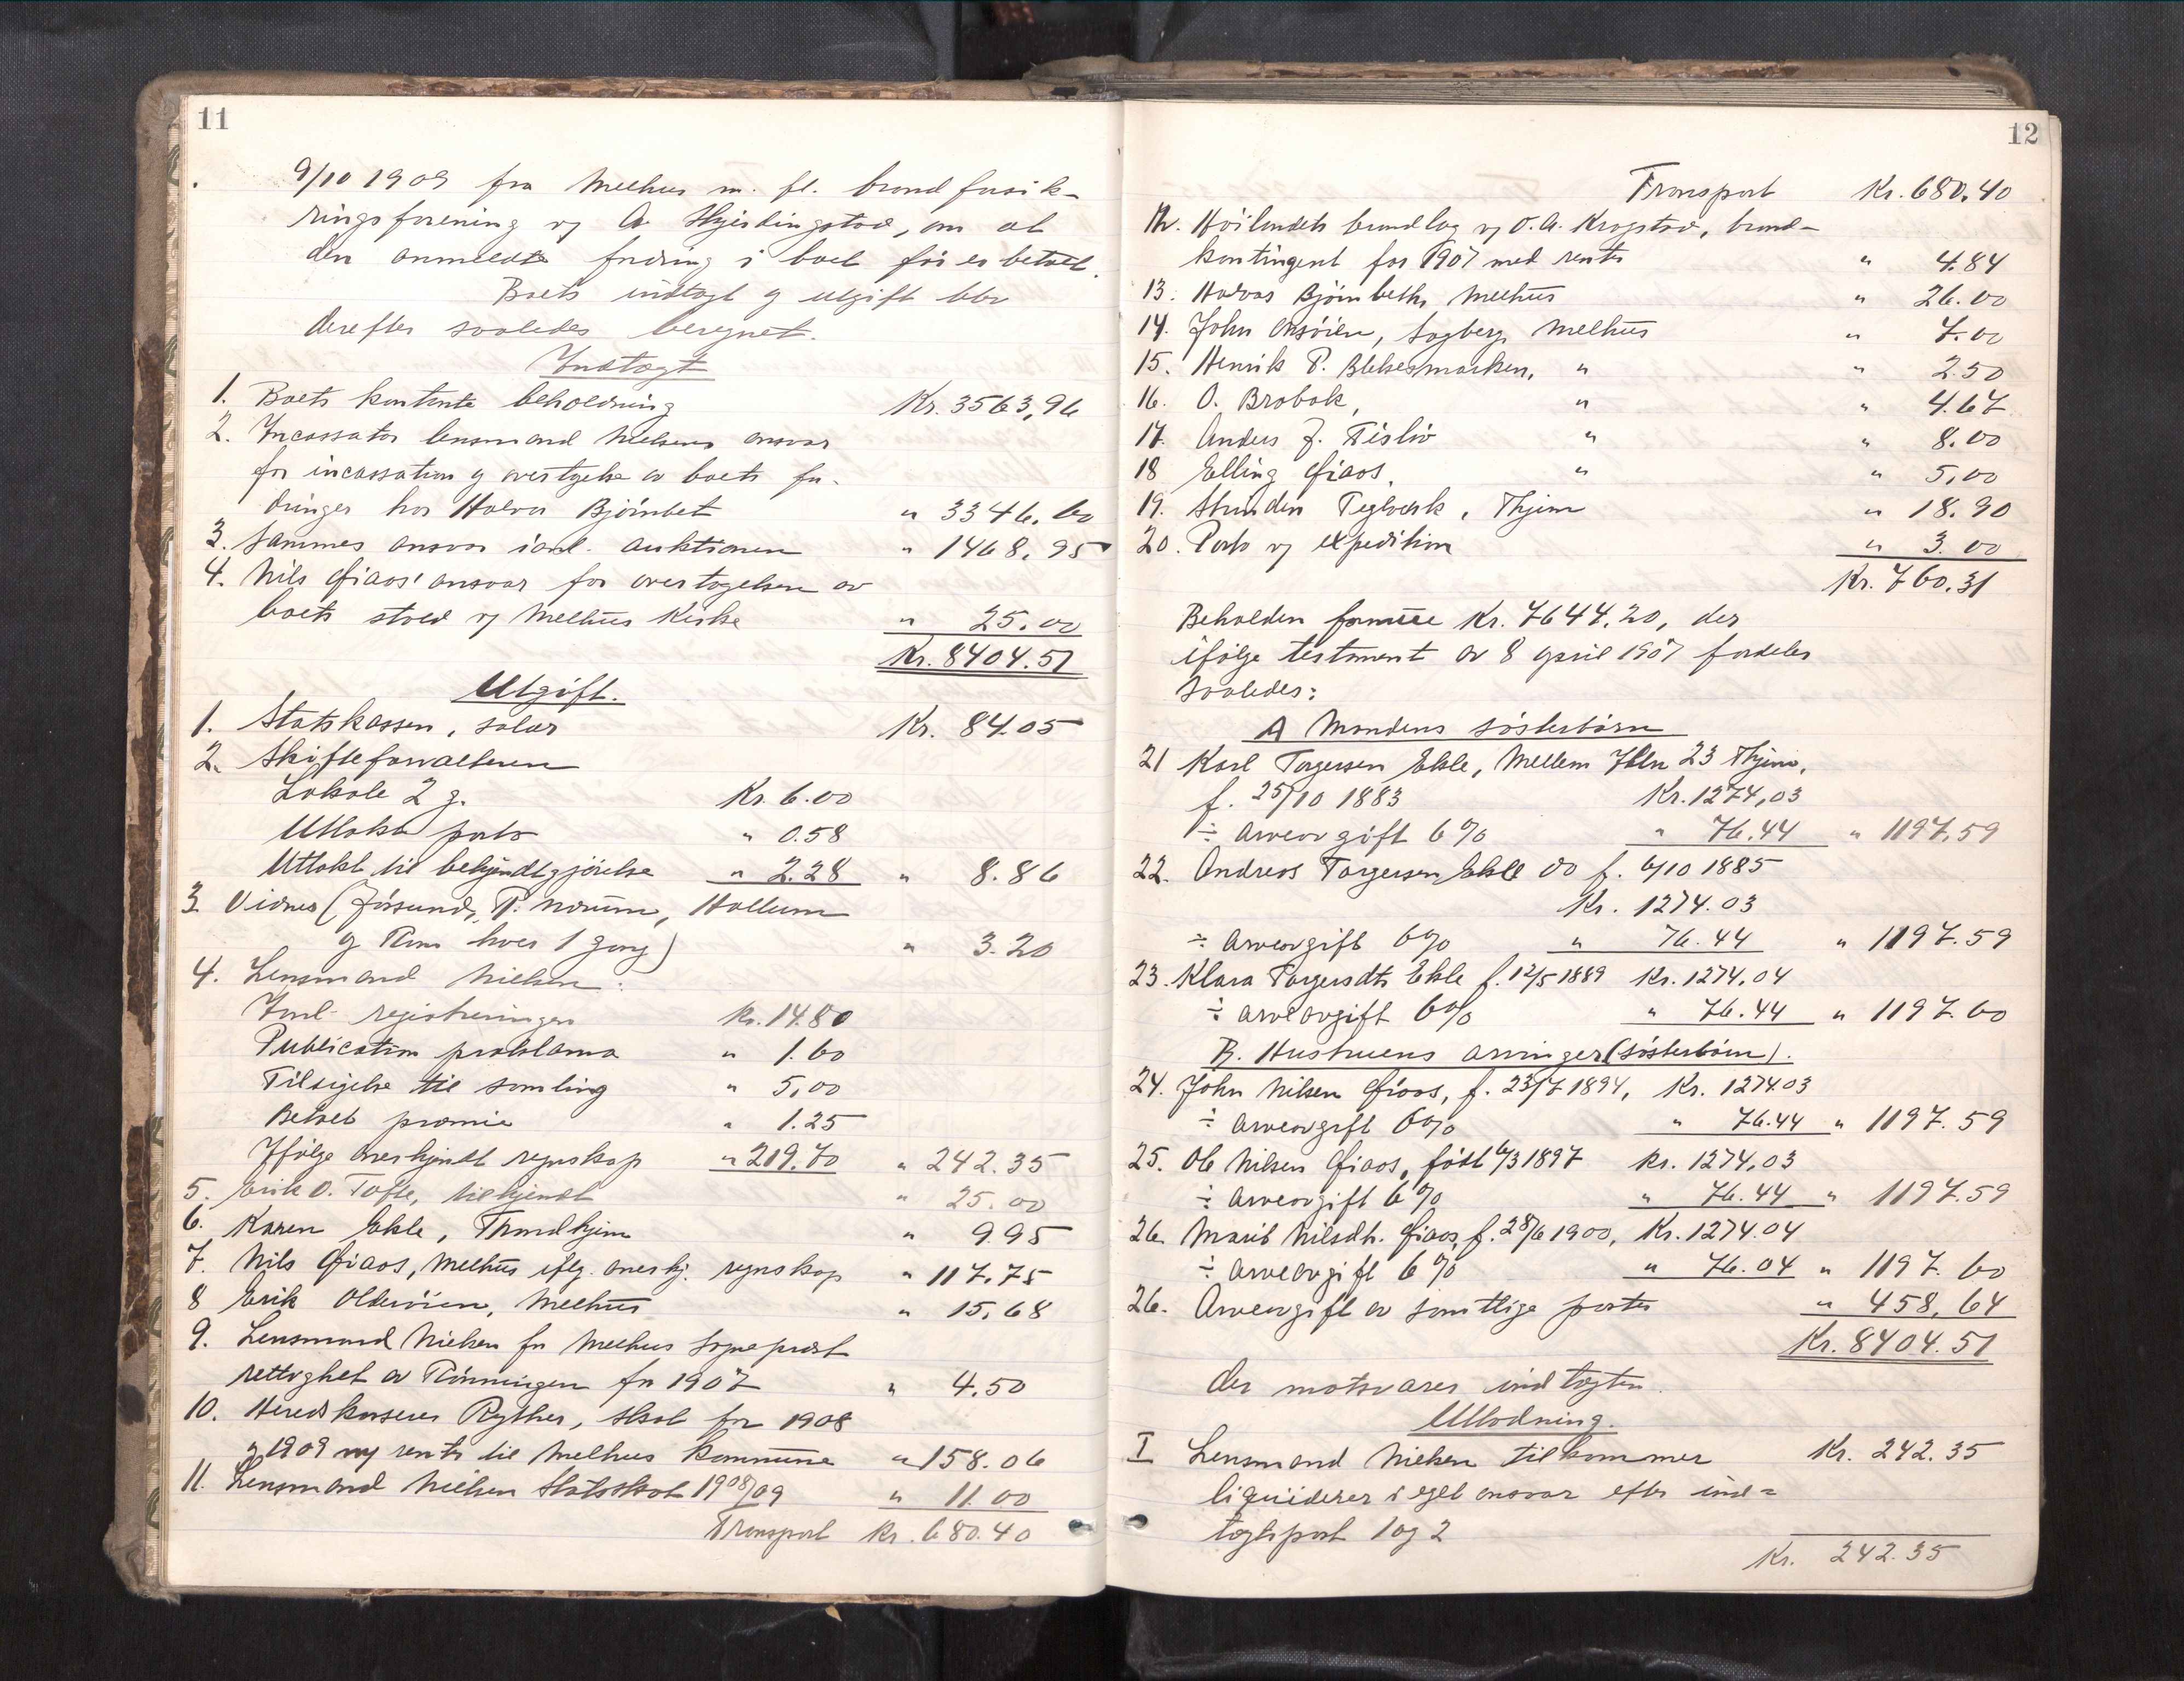 11
9/10 1909 fra Melhus m. fl. brandforsik-
ringsforening v/ A. Skjerdingstad, om at
den anmeldte fordring i boet før er betalt.
Boets indtægt og utgift blev
derefter saaledes beregnet.
Indtægt
1. Boets kontante beholdning Kr. 3563,96
2. Incassator lensmand Nielsens ansvar
for incassation og overtagelse av boets for-
dringer hos Halvor Bjørnbet " 3346.60
3. Sammes ansvar i anl. auktionen " 1468.95
4. Nils Gjaas' ansvar for overtagelsen av
boets stoel v/ Melhus Kirke " 25.00
Kr. 8404.51
Utgift.
1. Statskassen, salær Kr. 84.05
2. Skifteforvalteren
Lokale 2 g. Kr. 6.00
Utlokt porto " 0.58
Utlokt til bekjendtgjørelse " 2.28 " 8.86
3. Vidner (Jøssund, P. Norum, Hollum
og Rim hver 1 gang) " 3.20
4. Lensmand Nielsen:
Inl. registreringen Kr. 14.80
Publication proklama " 1.60
Tilsigelse til samling " 5,00
Betalt præmie " 1.25
Ifølge anerkjendt regnskap " 219.70 " 242.35
5. Erik O. Tofte, tilkjendt " 25.00
6. Karen Ekle, Trondhjem " 9.95
7. Nils Gjaas, Melhus iflg. anerkj. regnskap " 117,75
8 Erik Oldervien, Melhus " 15,68
9. Lensmand Nielsen for Melhus sogneprest
rettighet av Rønningen for 1907 " 4.50
10. Heredskasserer Ryther, skat for 1908
og 1909 og rente til Melhus kommune " 158.06
11. Lensmand Nielsen Statsskat 1908/09 " 11.00
Transport Kr. 680.40
12
Transport Kr. 680.40
12. Høilandets brandlag v/ O. A. Krogstad, brand-
kontingent for 1907 med rente " 4.84
13. Halvor Bjørnbeth, Melhus " 26.00
14. John Onsøien, Søgberg, Melhus " 7.00
15. Henrik P. Blekesmarken, " " 2.50
16. O. Brobak, " " 4.67
17. Anders J. Fislid " " 8.00
18 Elling Gjaos, " " 5,00
19. Strinden Teglverk, Thjem " 18.90
20. Porto og expedition " 3.00
Kr. 760.31
Beholden formue Kr. 7644.20, der
ifølge testament av 8 april 1907 fordeles
saaledes:
A Mandens søsterbørn
21 Karl Torgersen Ekle, Mellem Ilen 23 Thjem,
f. 25/10 1883 Kr. 1274,03
÷ arveavgift 6 % " 76.44 " 1197.59
22. Andreas Torgersen Ekle do f. 6/10 1885
Kr. 1274.03
÷ arveavgift 6 % " 76.44 " 1197.59
23. Klara Torgersdtr Ekle f. 12/5 1889 Kr. 1274.04
÷ arveavgift 6 % " 76.44 " 1197.60
B. Hustruens arvinger (søsterbørn).
24. John Nilsen Gjaos, f. 23/7 1894, Kr. 1274.03
÷ arveavgift 6 % " 76.44 " 1197.59
25. Ole Nilsen Gjaos, født 6/3 1897 Kr. 1274,03
÷ arveavgift 6 % " 76.44 " 1197.59
26. Marit Nilsdtr. Gjaos, f. 28/6 1900, Kr. 1274.04
÷ arveavgift 6 % " 76.04 " 1197.60
26. Arveavgift av samtlige parter " 458,64
Kr. 8404.51
der motsvarer indtægten.
Utlodning.
I Lensmand Nielsen tilkommer Kr. 242.35
liquiderer i eget ansvar efter ind-
tægtspost 1 og 2
Kr. 242.35